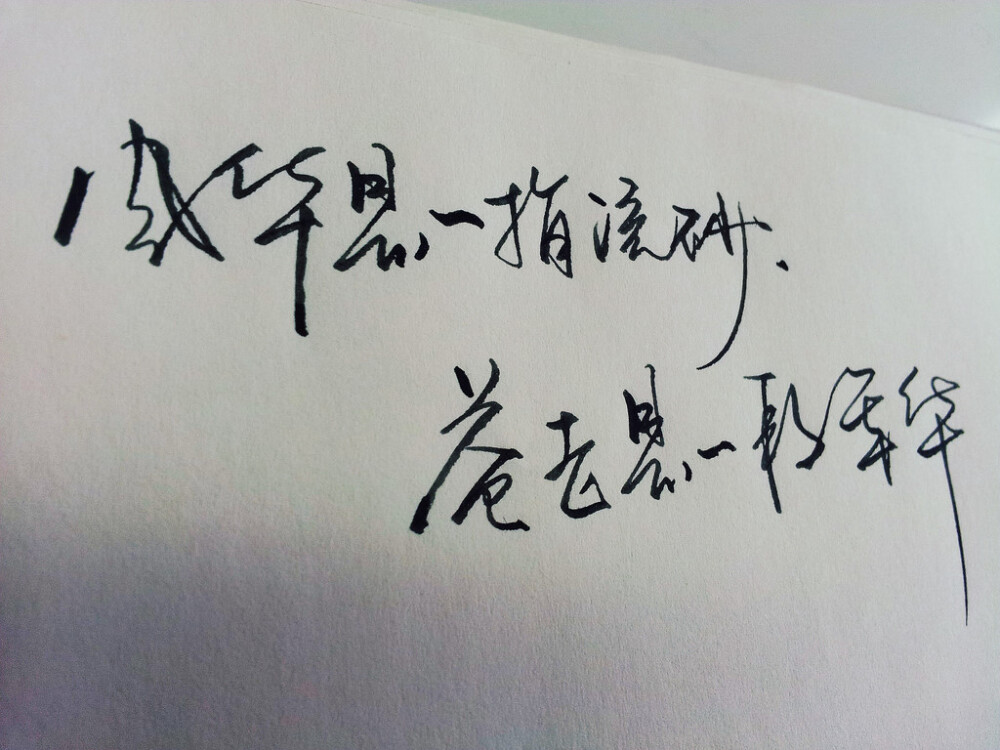 风华是一指流砂.
苍老是一段年华